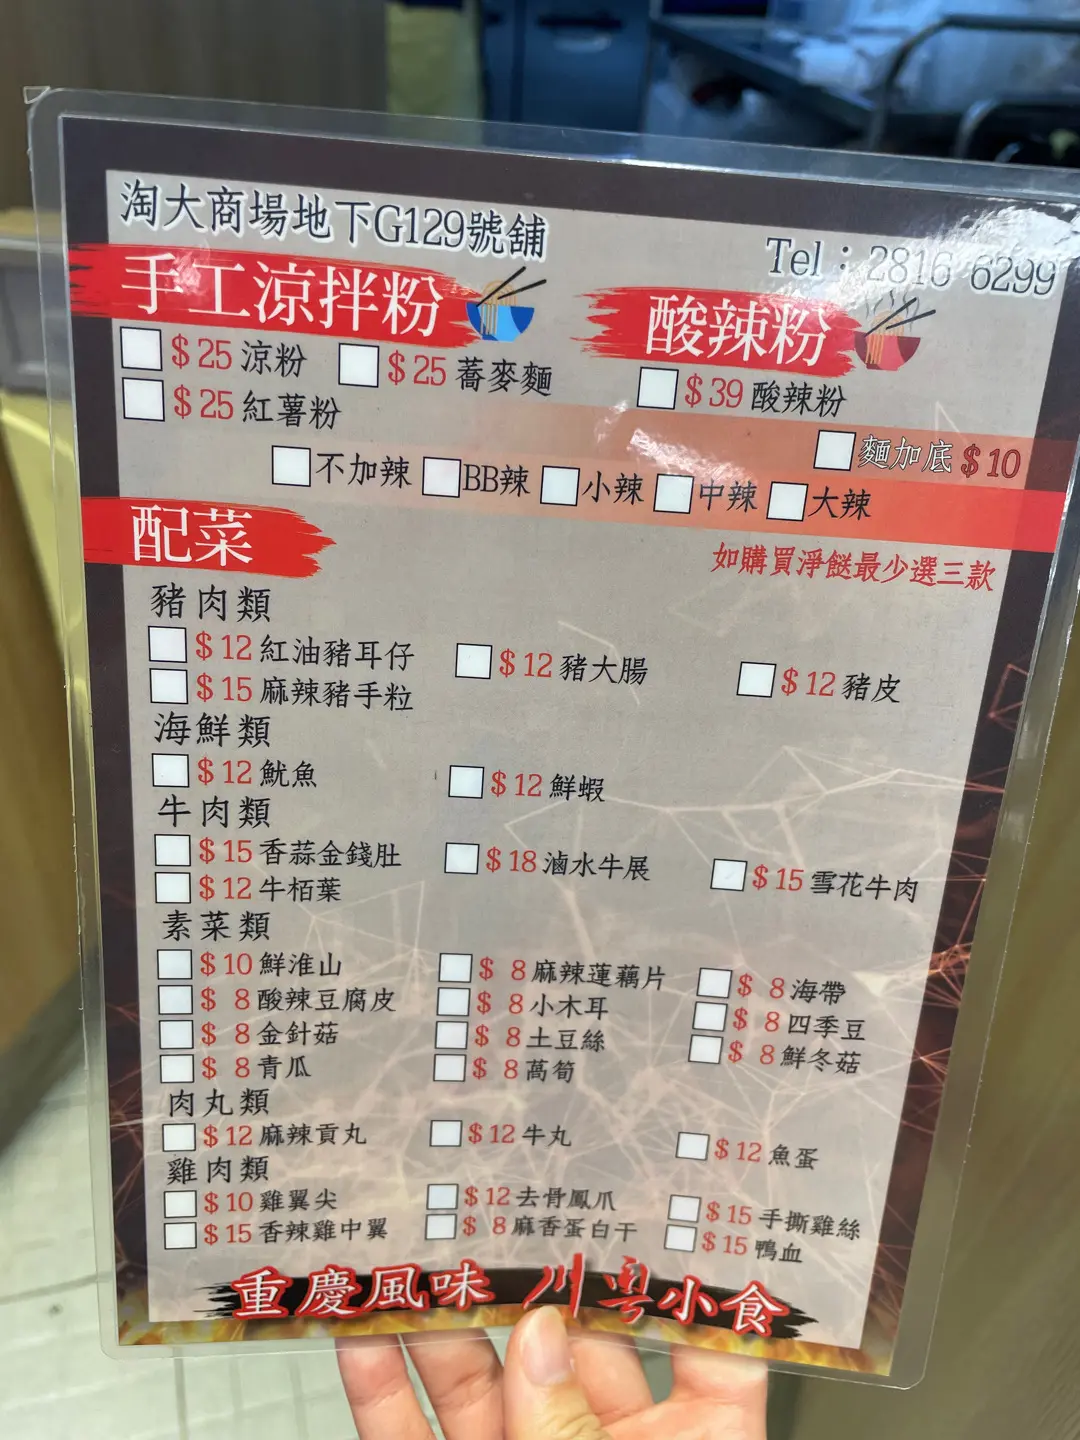 淘大商場地下G129號舖
Tel：2816 6299
手工涼拌粉
酸辣粉
$25 涼粉 $25 蕎麥麵
$25 紅薯粉
$39 酸辣粉
麵加底 $10
不加辣 BB辣 小辣 中辣 大辣
配菜
如購買淨餸最少選三款
豬肉類
$12 紅油豬耳仔 $12 豬大腸 $12 豬皮
$15 麻辣豬手粒
海鮮類
$12 魷魚 $12 鮮蝦
牛肉類
$15 香蒜金錢肚 $18 滷水牛展 $15 雪花牛肉
$12 牛栢葉
素菜類
$10 鮮淮山 $ 8 麻辣蓮藕片 $ 8 海帶
$ 8 酸辣豆腐皮 $ 8 小木耳 $ 8 四季豆
$ 8 金針菇 $ 8 土豆絲 $ 8 鮮冬菇
$ 8 青瓜 $ 8 萵筍
肉丸類
$12 麻辣貢丸 $12 牛丸 $12 魚蛋
雞肉類
$10 雞翼尖 $12 去骨鳳爪 $15 手撕雞絲
$15 香辣雞中翼 $ 8 麻香蛋白干 $15 鴨血
重慶風味 川粵小食